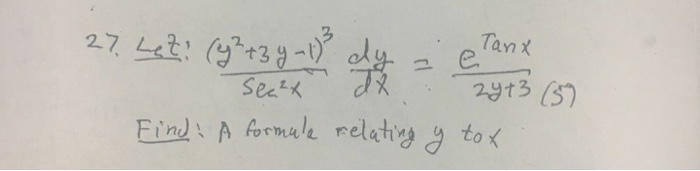 27. Let: (y²+3y-1)³/Sec²x dy/dx = e^Tanx/2y+3 (5)
Find: A formula relating y to x